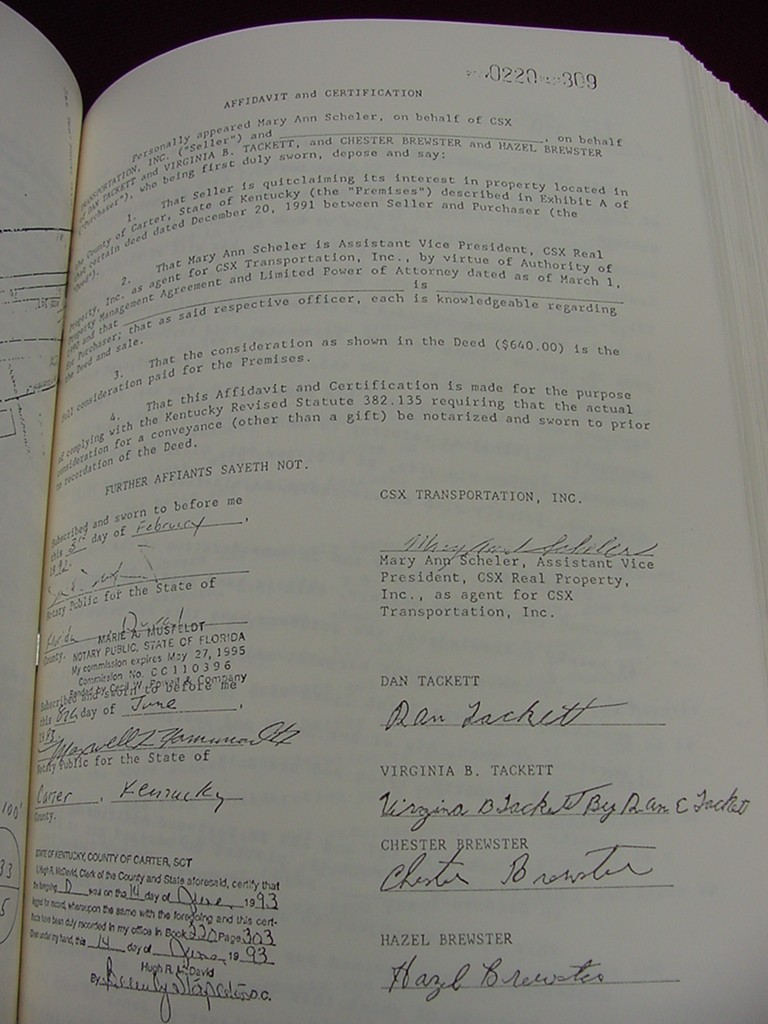 0220 309
AFFIDAVIT and CERTIFICATION
Personally appeared Mary Ann Scheler, on behalf of CSX
TRANSPORTATION, INC. ("Seller") and ____________, on behalf
of DAN TACKETT and VIRGINIA B. TACKETT, and CHESTER BREWSTER and HAZEL BREWSTER
("Purchaser"), who being first duly sworn, depose and say:
1. That Seller is quitclaiming its interest in property located in
the County of Carter, State of Kentucky (the "Premises") described in Exhibit A of
that certain deed dated December 20, 1991 between Seller and Purchaser (the
"Deed").
2. That Mary Ann Scheler is Assistant Vice President, CSX Real
Property, Inc. as agent for CSX Transportation, Inc., by virtue of Authority of
Property Management Agreement and Limited Power of Attorney dated as of March 1,
1990 and that ____________ is ____________
for Purchaser; that as said respective officer, each is knowledgeable regarding
the Deed and sale.
3. That the consideration as shown in the Deed ($640.00) is the
full consideration paid for the Premises.
4. That this Affidavit and Certification is made for the purpose
of complying with the Kentucky Revised Statute 382.135 requiring that the actual
consideration for a conveyance (other than a gift) be notarized and sworn to prior
to recordation of the Deed.
FURTHER AFFIANTS SAYETH NOT.
Subscribed and sworn to before me
this 3rd day of February,
1992.
Notary Public for the State of
Florida, Duval
County.
MARIE A. MUSFELDT
NOTARY PUBLIC, STATE OF FLORIDA
My commission expires May 27, 1995
Commission No. CC110396
Bonded by Cecil W. Powell & Company
Subscribed and sworn to before me
this day of June,
Notary Public for the State of
Carter, Kentucky
County.
STATE OF KENTUCKY, COUNTY OF CARTER, SCT
I, Hugh R. McDavid, Clerk of the County and State aforesaid, certify that
the foregoing D was on the 14 day of June, 1993
lodged for record, whereupon the same with the foregoing and this cert-
ificate have been duly recorded in my office in Book 220 Page 303
Given under my hand, this 14 day of June, 1993
Hugh R. McDavid
By: Beverly Stapleton D.C.
CSX TRANSPORTATION, INC.
Mary Ann Scheler
Mary Ann Scheler, Assistant Vice
President, CSX Real Property,
Inc., as agent for CSX
Transportation, Inc.
DAN TACKETT
Dan Tackett
VIRGINIA B. TACKETT
Virgina B Tackett By Dan E Tackett
CHESTER BREWSTER
Chester Brewster
HAZEL BREWSTER
Hazel Brewster
100'
33
5